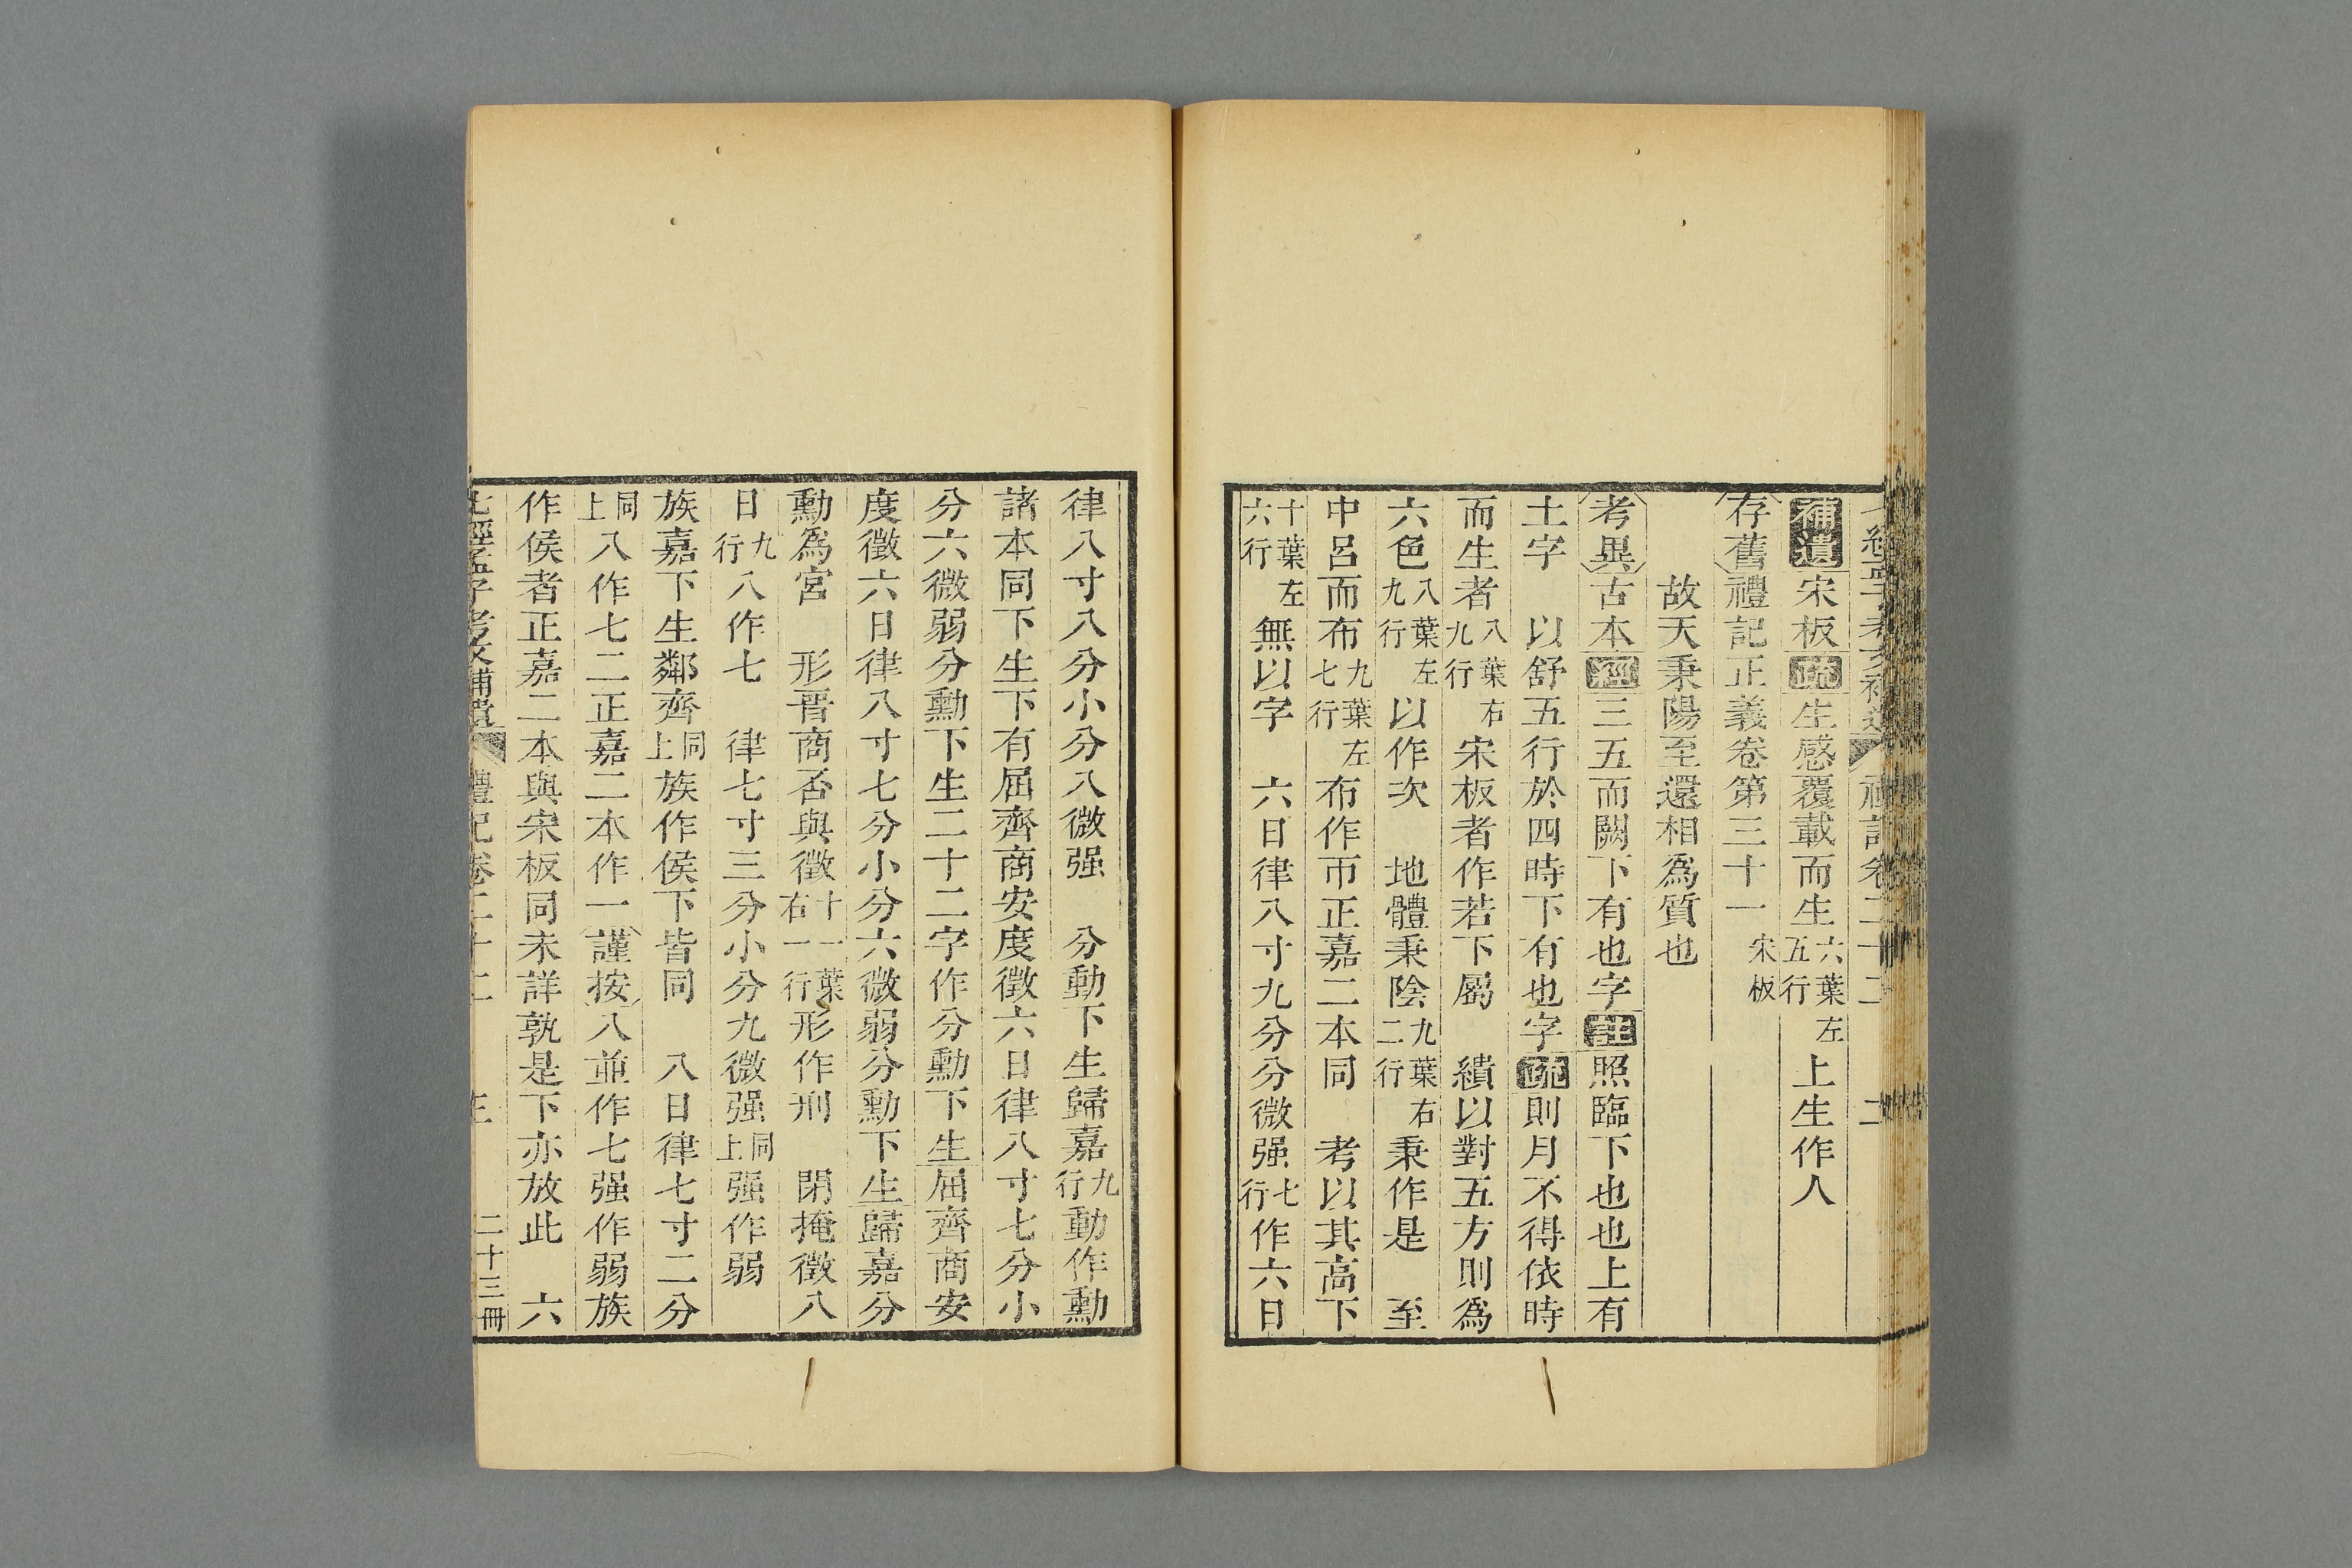 七經孟子考文補遺 禮記卷二十二 二
補遺宋板疏生感覆載而生六葉左五行上生作人
存舊禮記正義卷第三十一宋板
故天秉陽至還相爲質也
考異古本經三五而闕下有也字註照臨下也也上有
土字 以舒五行於四時下有也字疏則月不得依時
而生者八葉右九行宋板者作若下屬 繢以對五方則爲
六色八葉左九行以作次 地體秉陰九葉右二行秉作是 至
中呂而布九葉左七行布作帀正嘉二本同 考以其高下
十葉左六行無以字 六日律八寸九分分微强七行作六日
律八寸八分小分八微强 分動下生歸嘉九行動作勳
諸本同下生下有屈齊商安度徵六日律八寸七分小
分六微弱分勳下生二十二字作分勳下生屈齊商安
度徵六日律八寸七分小分六微弱分勳下生歸嘉分
勳爲宮 形晉商否與徵十一葉右一行形作刑 閉掩徵八
日九行八作七 律七寸三分小分九微强同上强作弱
族嘉下生鄰齊同上族作侯下皆同 八日律七寸二分
同上八作七二正嘉二本作一謹按八並作七强作弱族
作侯者正嘉二本與宋板同未詳孰是下亦放此 六
七經孟子考文補遺 禮記卷二十二 三 二十三冊